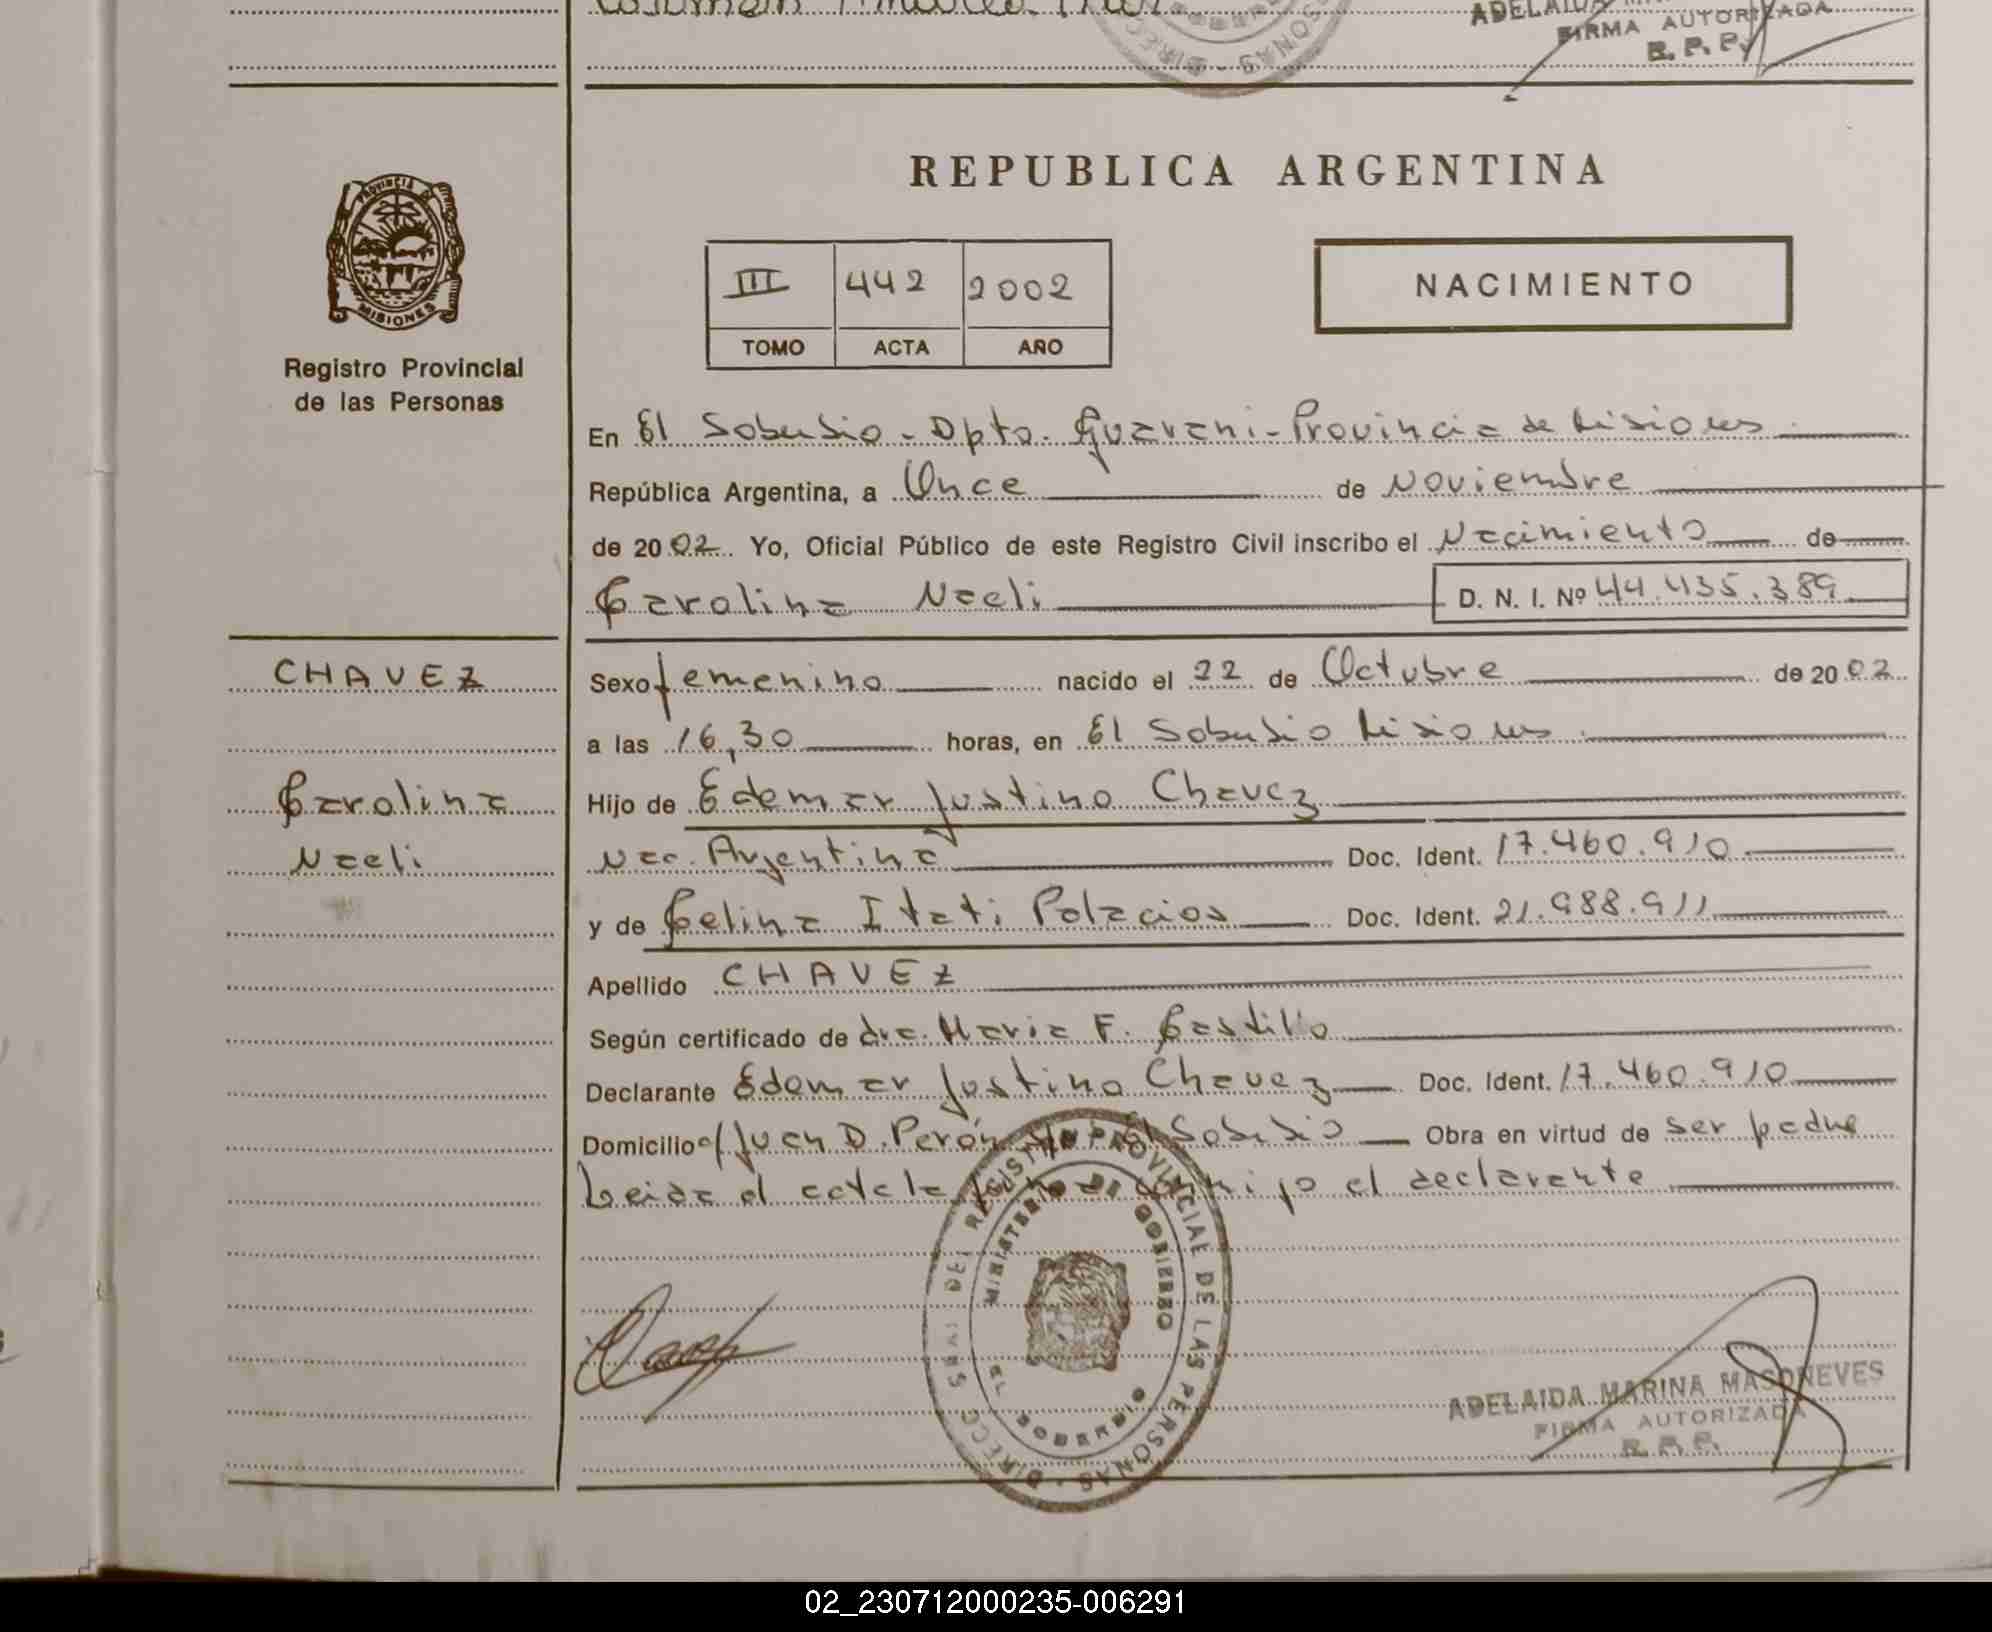 ADELAIDA
FIRMA AUTORIZADA
R. P. P.
REPUBLICA ARGENTINA
PROVINCIA DE
MISIONES
Registro Provincial
de las Personas
III 442 2002
TOMO ACTA AÑO
NACIMIENTO
En El Soberbio - Dpto. Guarani - Provincia de Misiones
República Argentina, a Once de Noviembre
de 2002 Yo, Oficial Público de este Registro Civil inscribo el Nacimiento de
Carolina Naeli D. N. I. Nº 44.435.389
CHAVEZ
Carolina
Naeli
Sexo femenino nacido el 22 de Octubre de 2002
a las 16,30 horas, en El Soberbio Misiones
Hijo de Edemar Justino Chavez
Nac. Argentina Doc. Ident. 17.460.910
y de Celina Itati Palacios Doc. Ident. 21.988.911
Apellido CHAVEZ
Según certificado de dra. Maria F. Castillo
Declarante Edemar Justino Chavez Doc. Ident. 17.460.910
Domicilio c/ Juan D. Perón El Soberbio Obra en virtud de ser padre
Leida el acta la el declarante
DIRECC GRAL DEL REGISTRO PROVINCIAL DE LAS PERSONAS
MINISTERIO DE GOBIERNO
EL SOBERBIO
ADELAIDA MARINA MASONEVES
FIRMA AUTORIZADA
R. P. P.
02_230712000235-006291